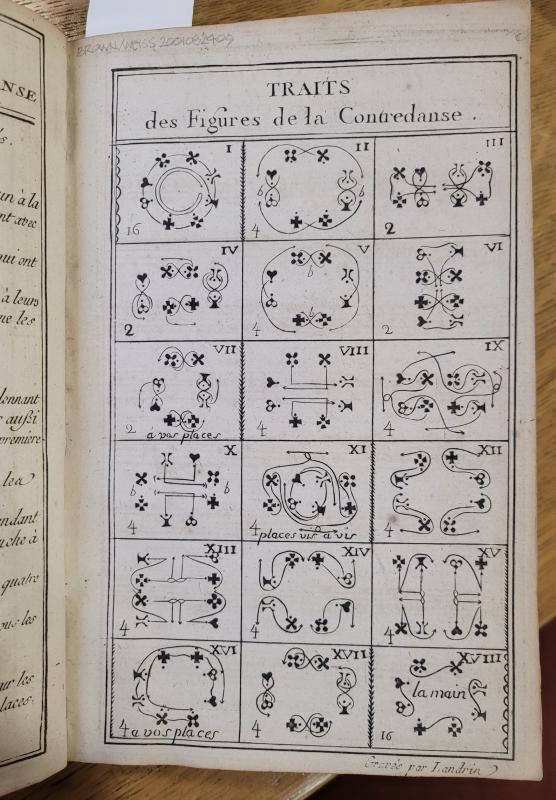 BROWN/WEISS 2001082409
ANSE
un à la
nt avec
qui ont
à leurs
ue les
donnant
aussi
première
les
endant
uche à
quatre
ous les
ur les
laces.
TRAITS
des Figures de la Contredanse .
I
16
II
b b
4
III
2
IV
2
V
b
b
4
VI
2
VII
2 à vos places
VIII
4
IX
4
X
b b
4
XI
4 places vis à vis
XII
4
XIII
4
XIV
4
XV
4
XVI
4 a vos places
XVII
4
XVIII
la main
16
Gravée par Landrin